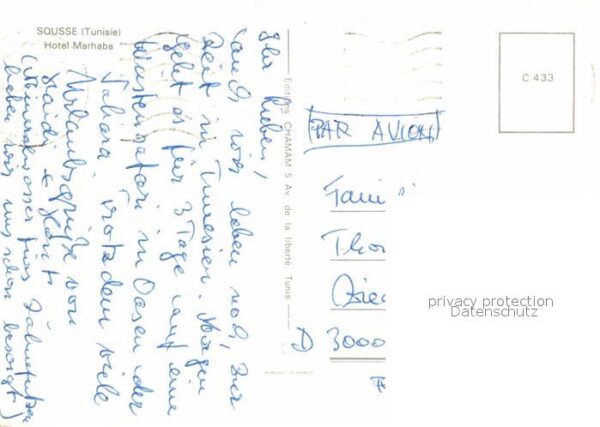 SOUSSE (Tunisie)
Hotel Marhaba
Ihr Lieben,
auch wir leben noch, zur
Zeit in Tunesien. Morgen
geht es für 3 Tage auf eine
Wüstensafari in Oasen der
Sahara. Trotzdem viele
Urlaubsgrüße von
+
(Mineralwasser fürs Zähneputzen
haben wir uns schon besorgt)
Editions CHAMAM 5 Av. de la liberté, Tunis
C 433
PAR AVION
Fami
Tho
D 3000
privacy protection
Datenschutz